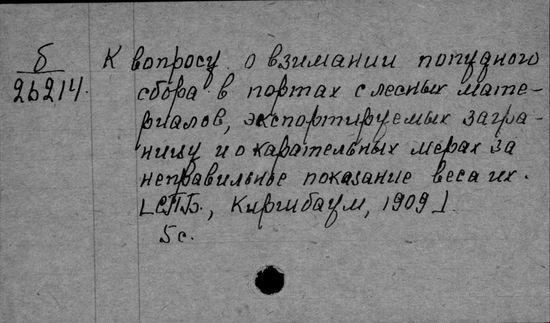 б
26214.
К вопросу о взимании попудного
сбора в портах с лесных мате-
риалов, экспортируемых загра-
ницу и о карательных мерах за
неправильное показание веса их.
[СПБ., Киршбаум, 1909].
5 с.